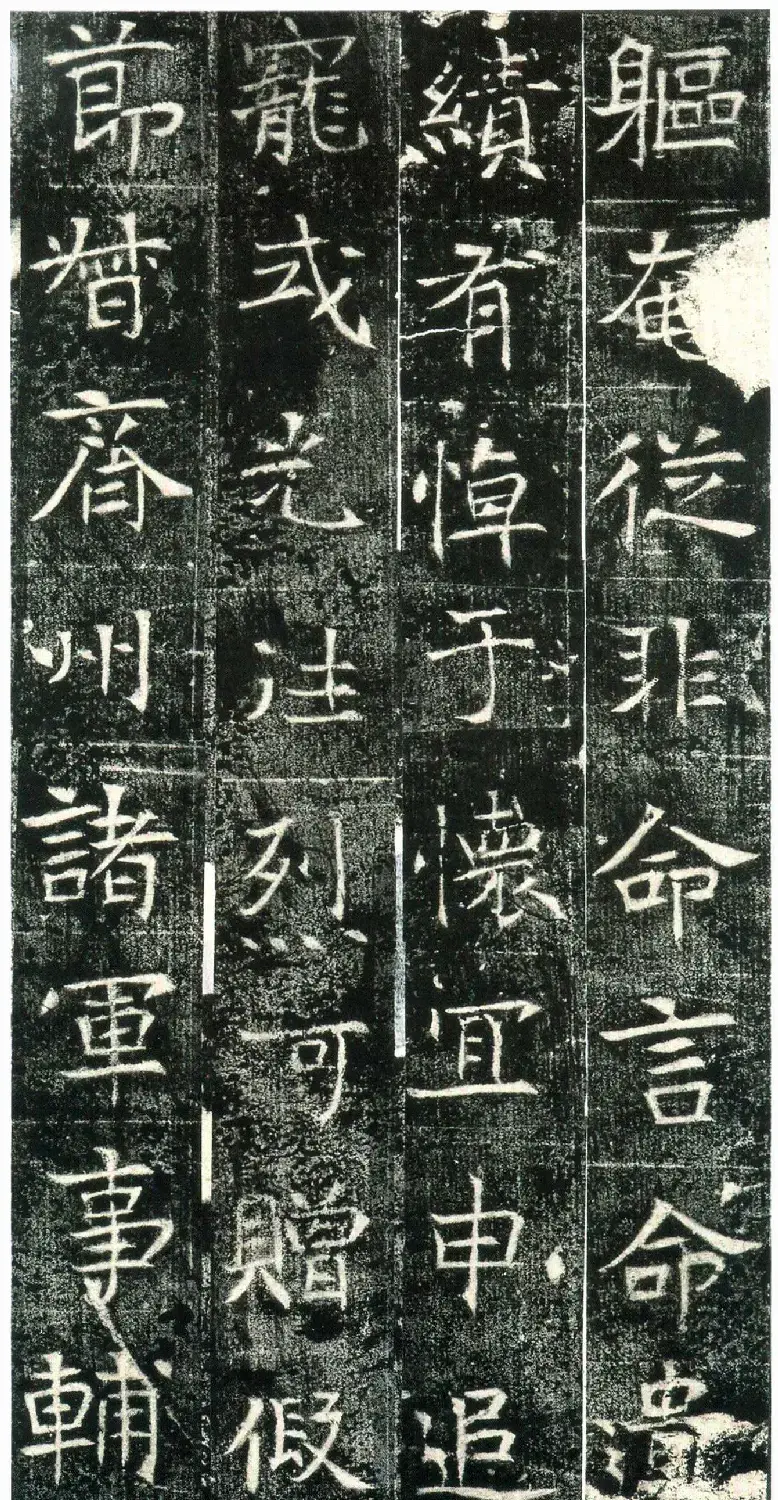 軀奄從非命言命遺
績有悼于懷宜申追
寵式光往烈可贈假
莭督齊州諸軍事輔